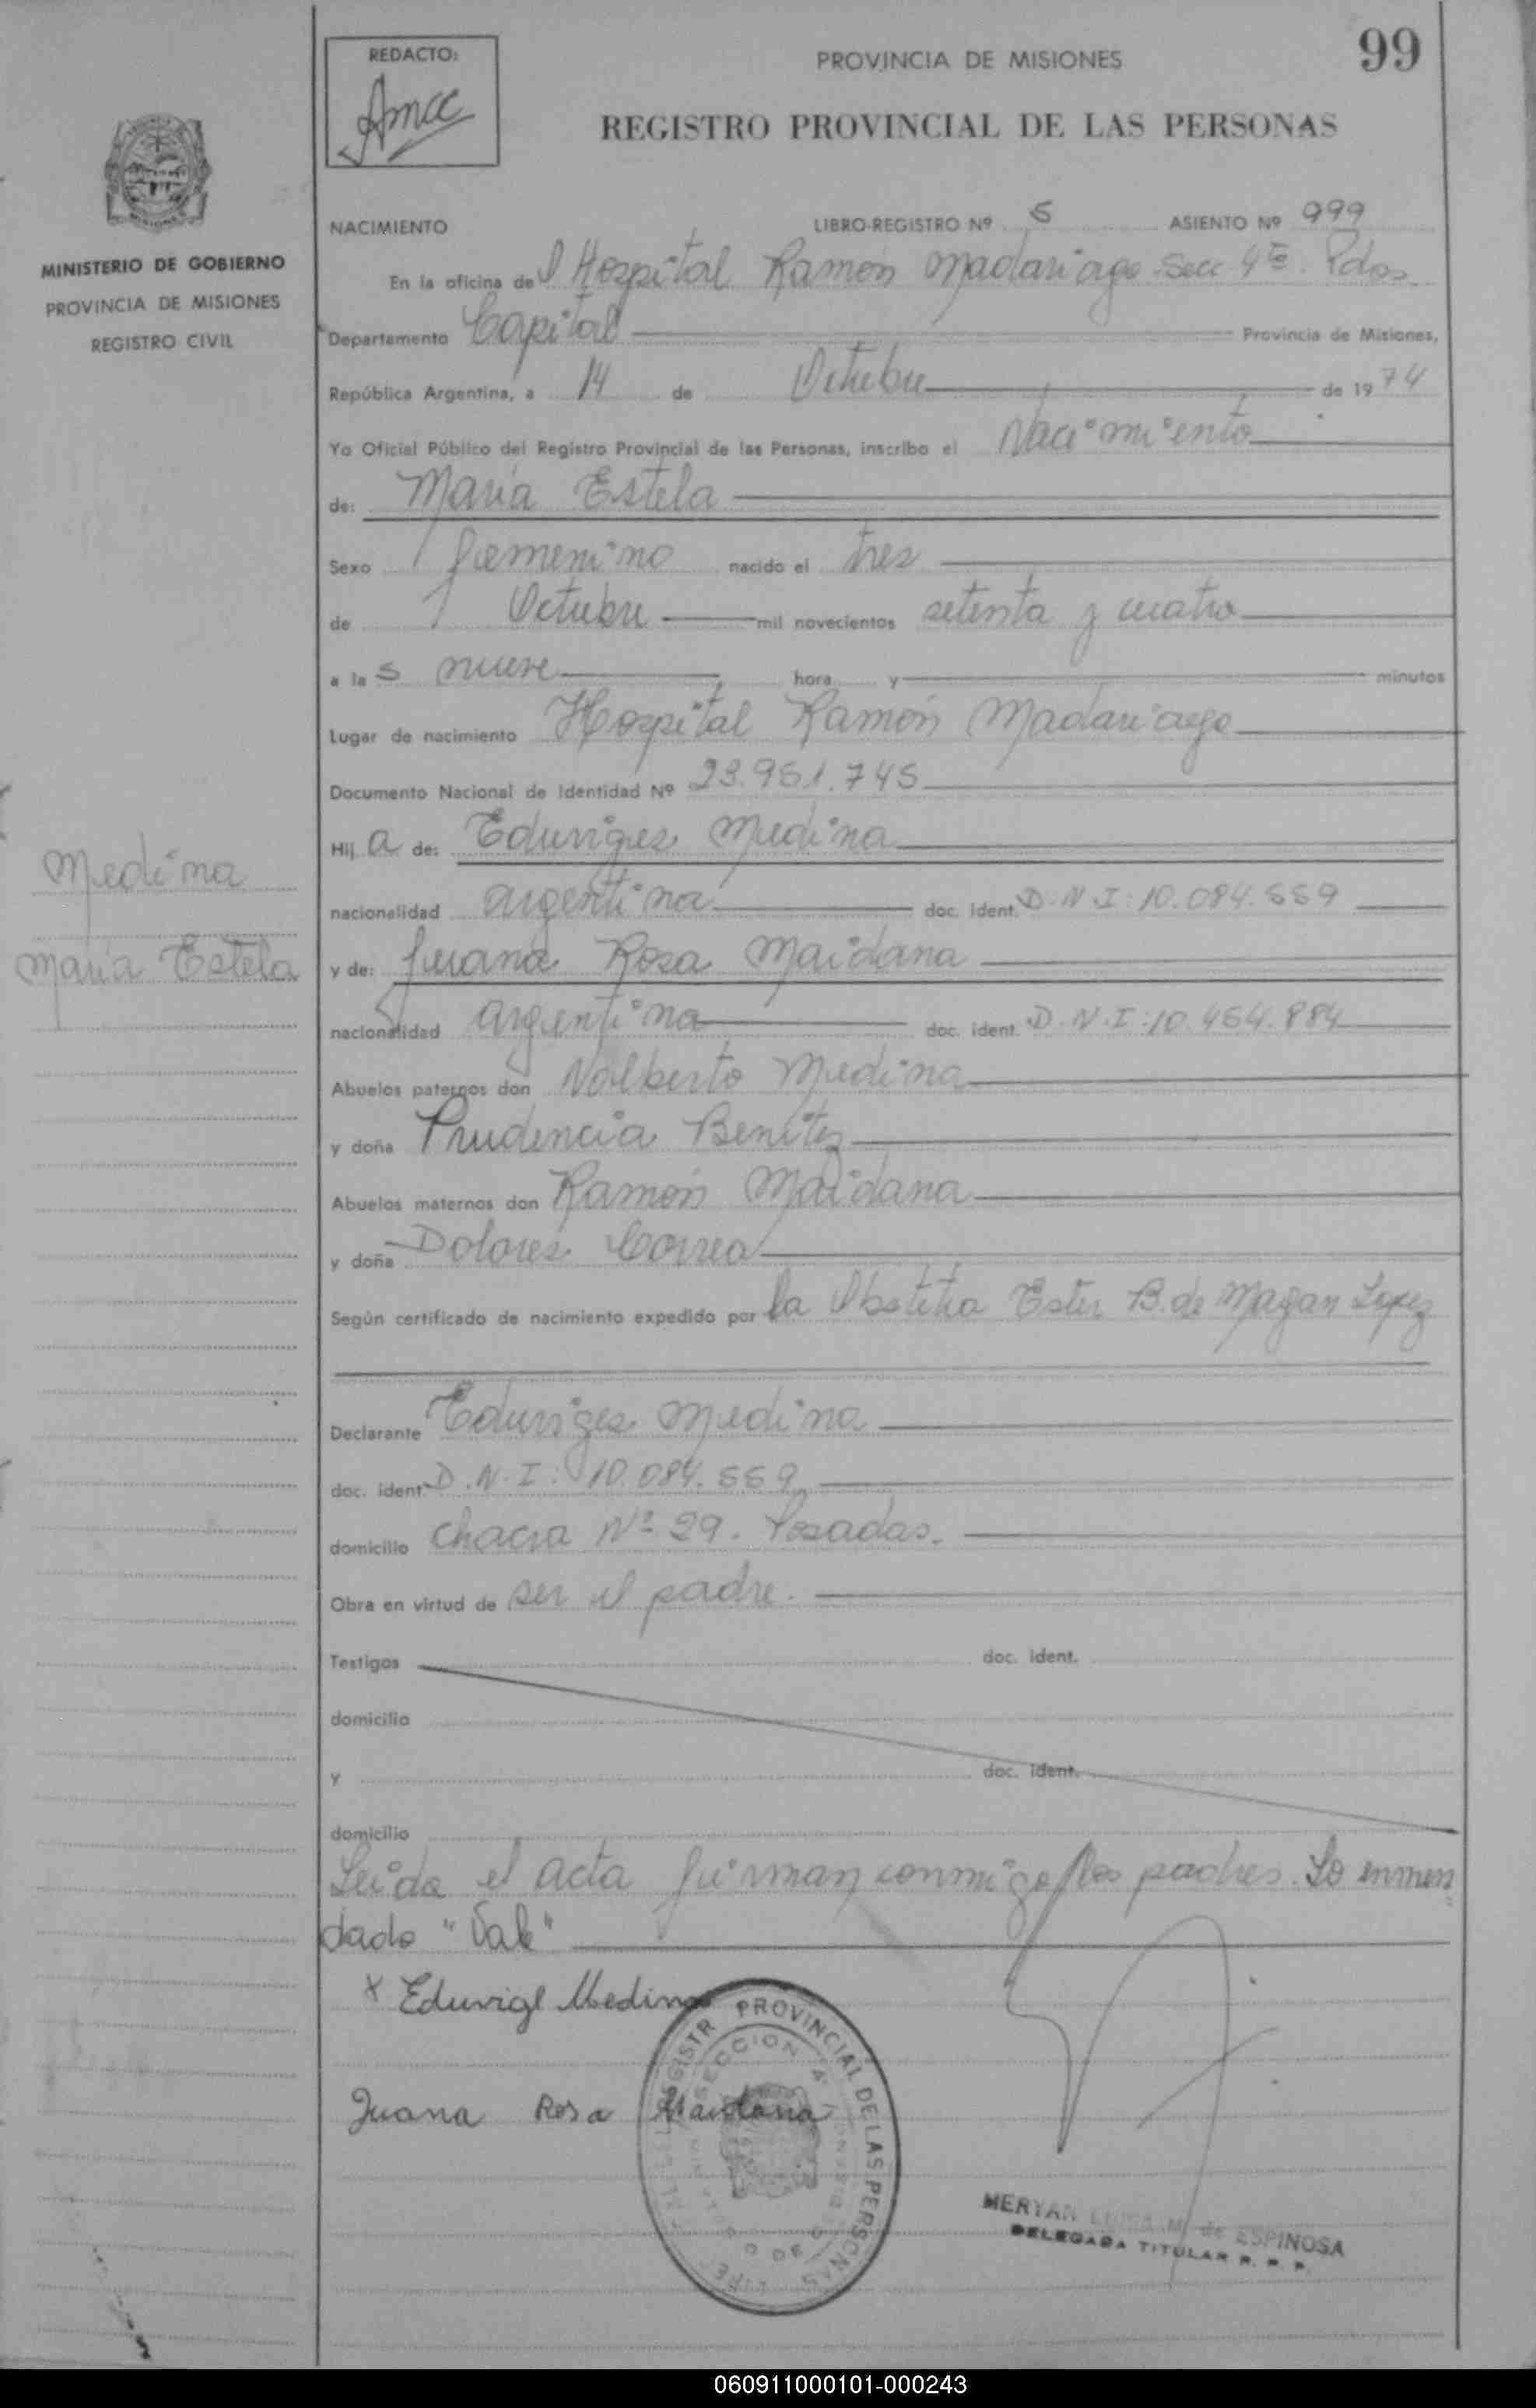 99
REDACTO:
PROVINCIA DE MISIONES
REGISTRO PROVINCIAL DE LAS PERSONAS
MINISTERIO DE GOBIERNO
PROVINCIA DE MISIONES
REGISTRO CIVIL
NACIMIENTO LIBRO-REGISTRO Nº 5 ASIENTO Nº 999
En la oficina del Hospital Ramón Madariaga Secc 4ta. Pdas
Departamento Capital Provincia de Misiones,
República Argentina, a 14 de Octubre de 1974
Yo Oficial Público del Registro Provincial de las Personas, inscribo el Nacimiento
de: María Estela
Sexo femenino nacido el tres
de Octubre mil novecientos setenta y cuatro
a las nueve hora y minutos
Lugar de nacimiento Hospital Ramón Madariaga
Documento Nacional de Identidad Nº 23.951.745
Hija de: Eduviges Medina
nacionalidad argentina doc. ident. D.N.I: 10.084.559
y de: Juana Rosa Maidana
nacionalidad argentina doc. ident. D.N.I: 10.464.884
Abuelos paternos don Nolberto Medina
y doña Prudencia Benitez
Abuelos maternos don Ramón Maidana
y doña Dolores Correa
Según certificado de nacimiento expedido por la Obstetra Ester B. de Magan Lopez
Declarante Eduviges Medina
doc. ident D.N.I: 10.084.559
domicilio Chacra Nº 29. Posadas.
Obra en virtud de ser el padre.
Testigos doc. ident.
domicilio
y doc. ident.
domicilio
Leida el acta firman conmigo los padres. Lo enmen
dado "Vale"
Medina
María Estela
x Eduvige Medina
Juana Rosa Maidana
PROVINCIAL DE LAS PERSONAS
SECCION
MERYAN LUISA M. de ESPINOSA
DELEGADA TITULAR R. P. P.
060911000101-000243